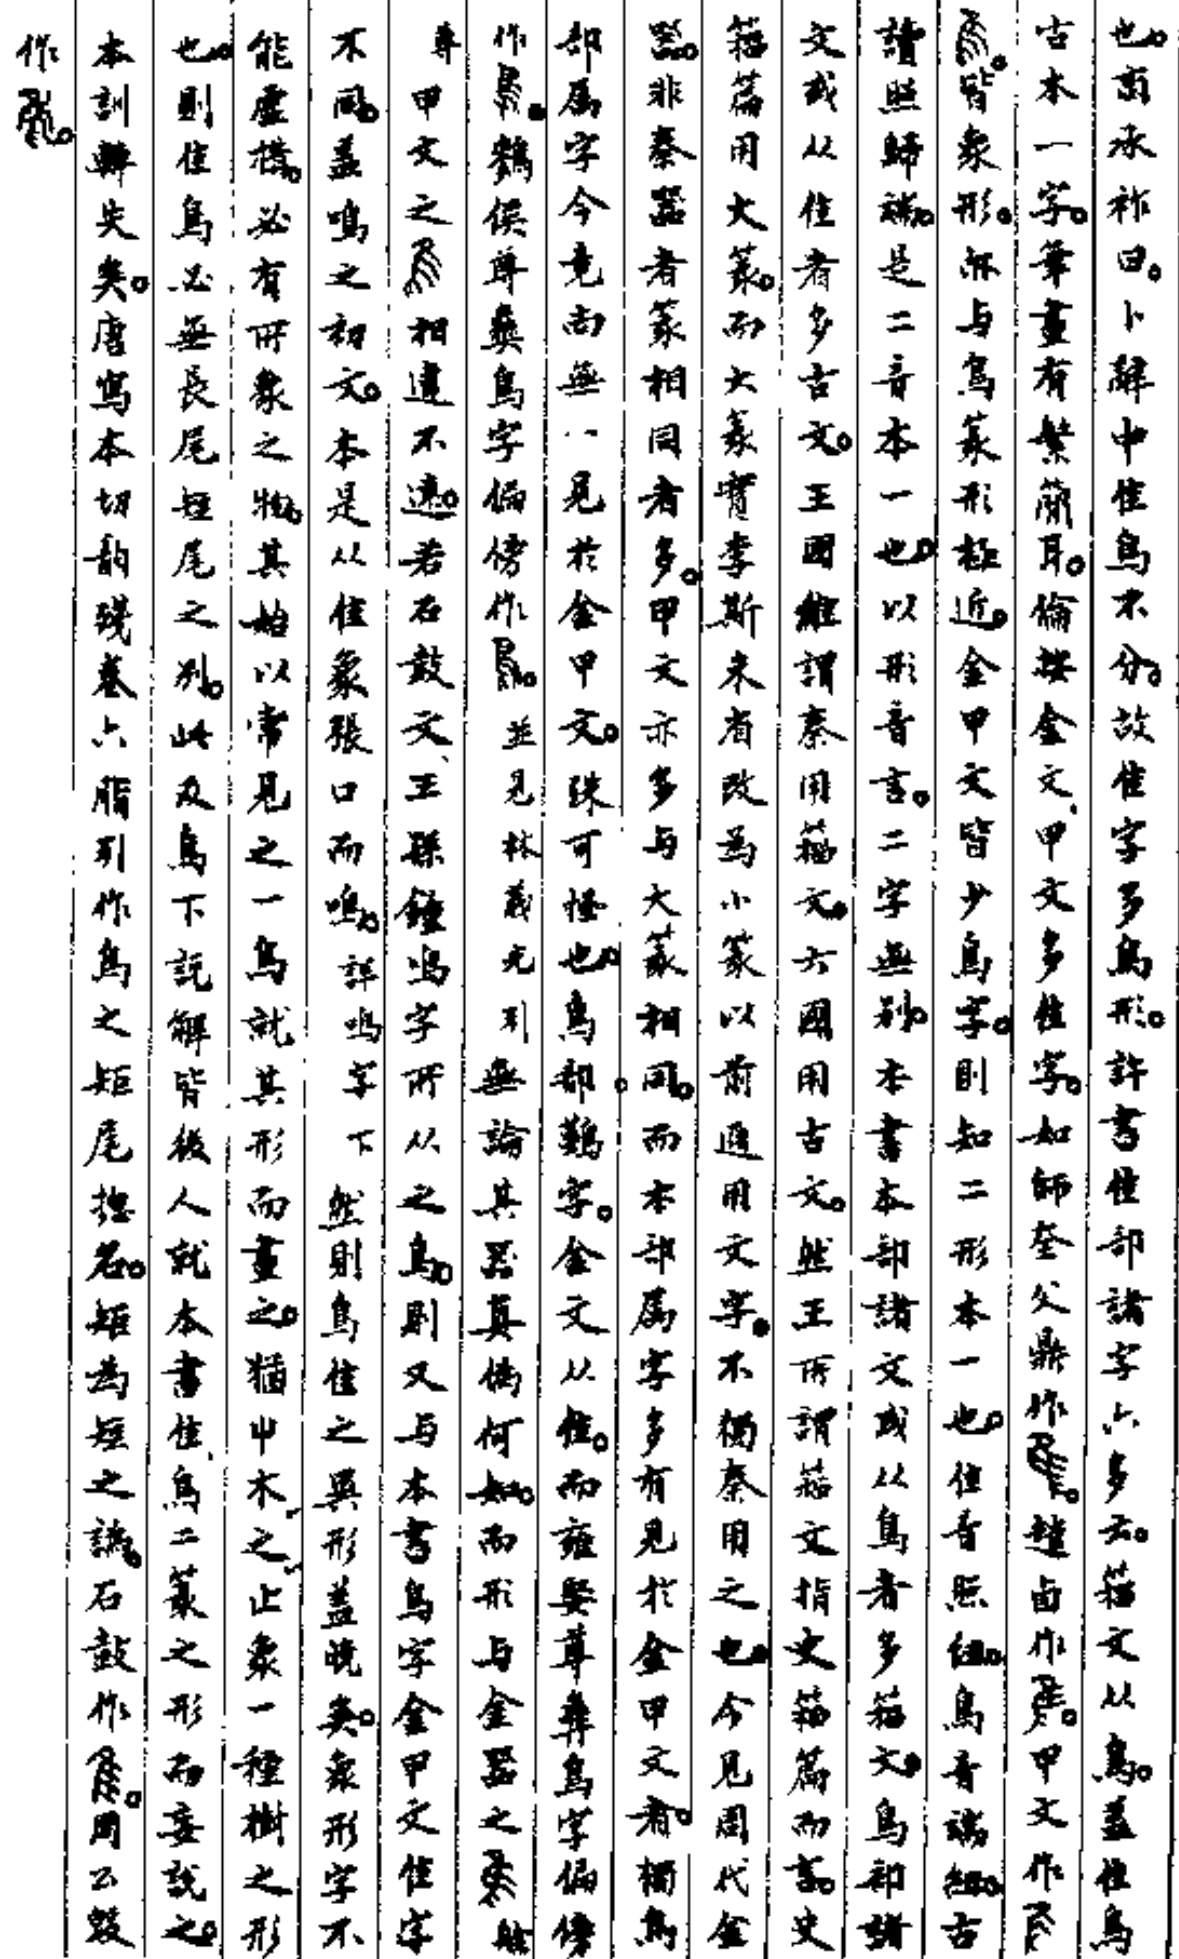 也。商承祚曰。卜辭中隹鳥不分。故隹字多鳥形。許書隹部諸字亦多云。籀文从鳥。蓋隹鳥
古本一字。筆畫有繁簡耳。倫按金文、甲文多隹字。如師父鼎作。趩卣作。甲文作
皆象形。與鳥篆形極近。金甲文皆少鳥字。則知二形本一也。隹音照紐。鳥音端紐。古
讀照歸端。是二音本一也。以形音言。二字無別。本書本部諸文或从鳥者多籀文。鳥部諸
文或从隹者多古文。王國維謂秦用籀文。六國用古文。然王所謂籀文指史籀篇而言。史
籀篇用大篆。而大篆實李斯未省改為小篆以前通用文字。不獨秦用之也。今見周代金
器。非秦器者篆相同者多。甲文亦多与大篆相同。而本部屬字多有見於金甲文者。獨鳥
部屬字今竟而無一見於金甲文。殊可怪也。鳥部鷄字。金文从隹。而雍娶尊彝鳥字偏傍
作。鶴侯尊彝鳥字偏傍作。並見林義光引無論其器真偽何如。而形与金器之
尊甲文之相違不遠。若石鼓文、王孫鐘鳴字所从之鳥。則又与本書鳥字金甲文隹字
不同。蓋鳴之初文。本是从隹象張口而鳴。詳鳴字下然則鳥隹之異形蓋晚矣。象形字不
能虛構。必有所象之物。其始以常見之一鳥就其形而畫之。猶屮木之止象一種樹之形
也。則隹鳥必無長尾短尾之別。此及鳥下說解皆後人就本書隹、鳥二篆之形而妄說之。
本訓轉失矣。唐寫本切韻殘卷六脂引作鳥之矩尾揔名。矩為短之譌。石鼓作。周公
作。